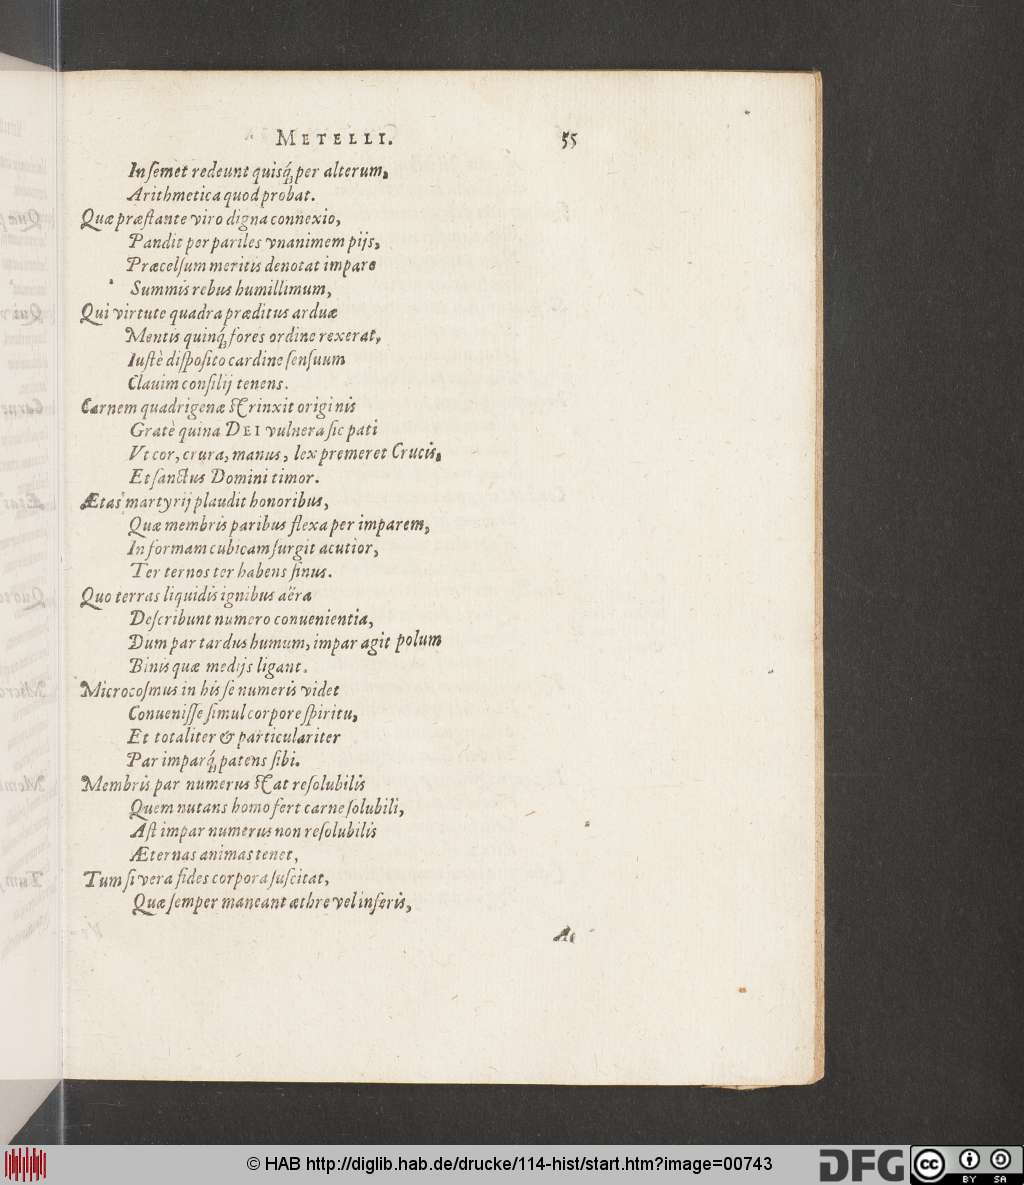 METELLI. 55
In ſemet redeunt quisq́ꝫ per alterum,
Arithmetica quod probat.
Quæ præſtante viro digna connexio,
Pandit per pariles vnanimem pijs,
Præcelſum meritis denotat impare
Summis rebus humillimum,
Qui virtute quadra præditus arduæ
Mentis quinq́ꝫ fores ordine rexerat,
Iuſtè diſpoſito cardine ſenſuum
Clauim conſilij tenens.
Carnem quadrigenæ ſtrinxit originis
Gratè quina DEI vulnera ſic pati
Vt cor, crura, manus, lex premeret Crucis,
Et ſanctus Domini timor.
Ætas martyrij plaudit honoribus,
Quæ membris paribus flexa per imparem,
In formam cubicam ſurgit acutior,
Ter ternos ter habens ſinus.
Quo terras liquidis ignibus aëra
Deſcribunt numero conuenientia,
Dum par tardus humum, impar agit polum
Binis quæ medijs ligant.
Microcoſmus in his ſe numeris videt
Conueniſſe ſimul corpore ſpiritu,
Et totaliter & particulariter
Par imparq́ꝫ patens ſibi.
Membris par numerus ſtat reſolubilis
Quem nutans homo fert carne ſolubili,
Aſt impar numerus non reſolubilis
Æternas animas tenet,
Tum ſi vera fides corpora ſuſcitat,
Quæ ſemper maneant æthre vel inferis,
Ac
© HAB http://diglib.hab.de/drucke/114-hist/start.htm?image=00743
DFG
cc BY SA